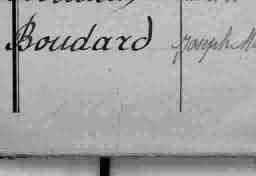 Boudard Joseph M